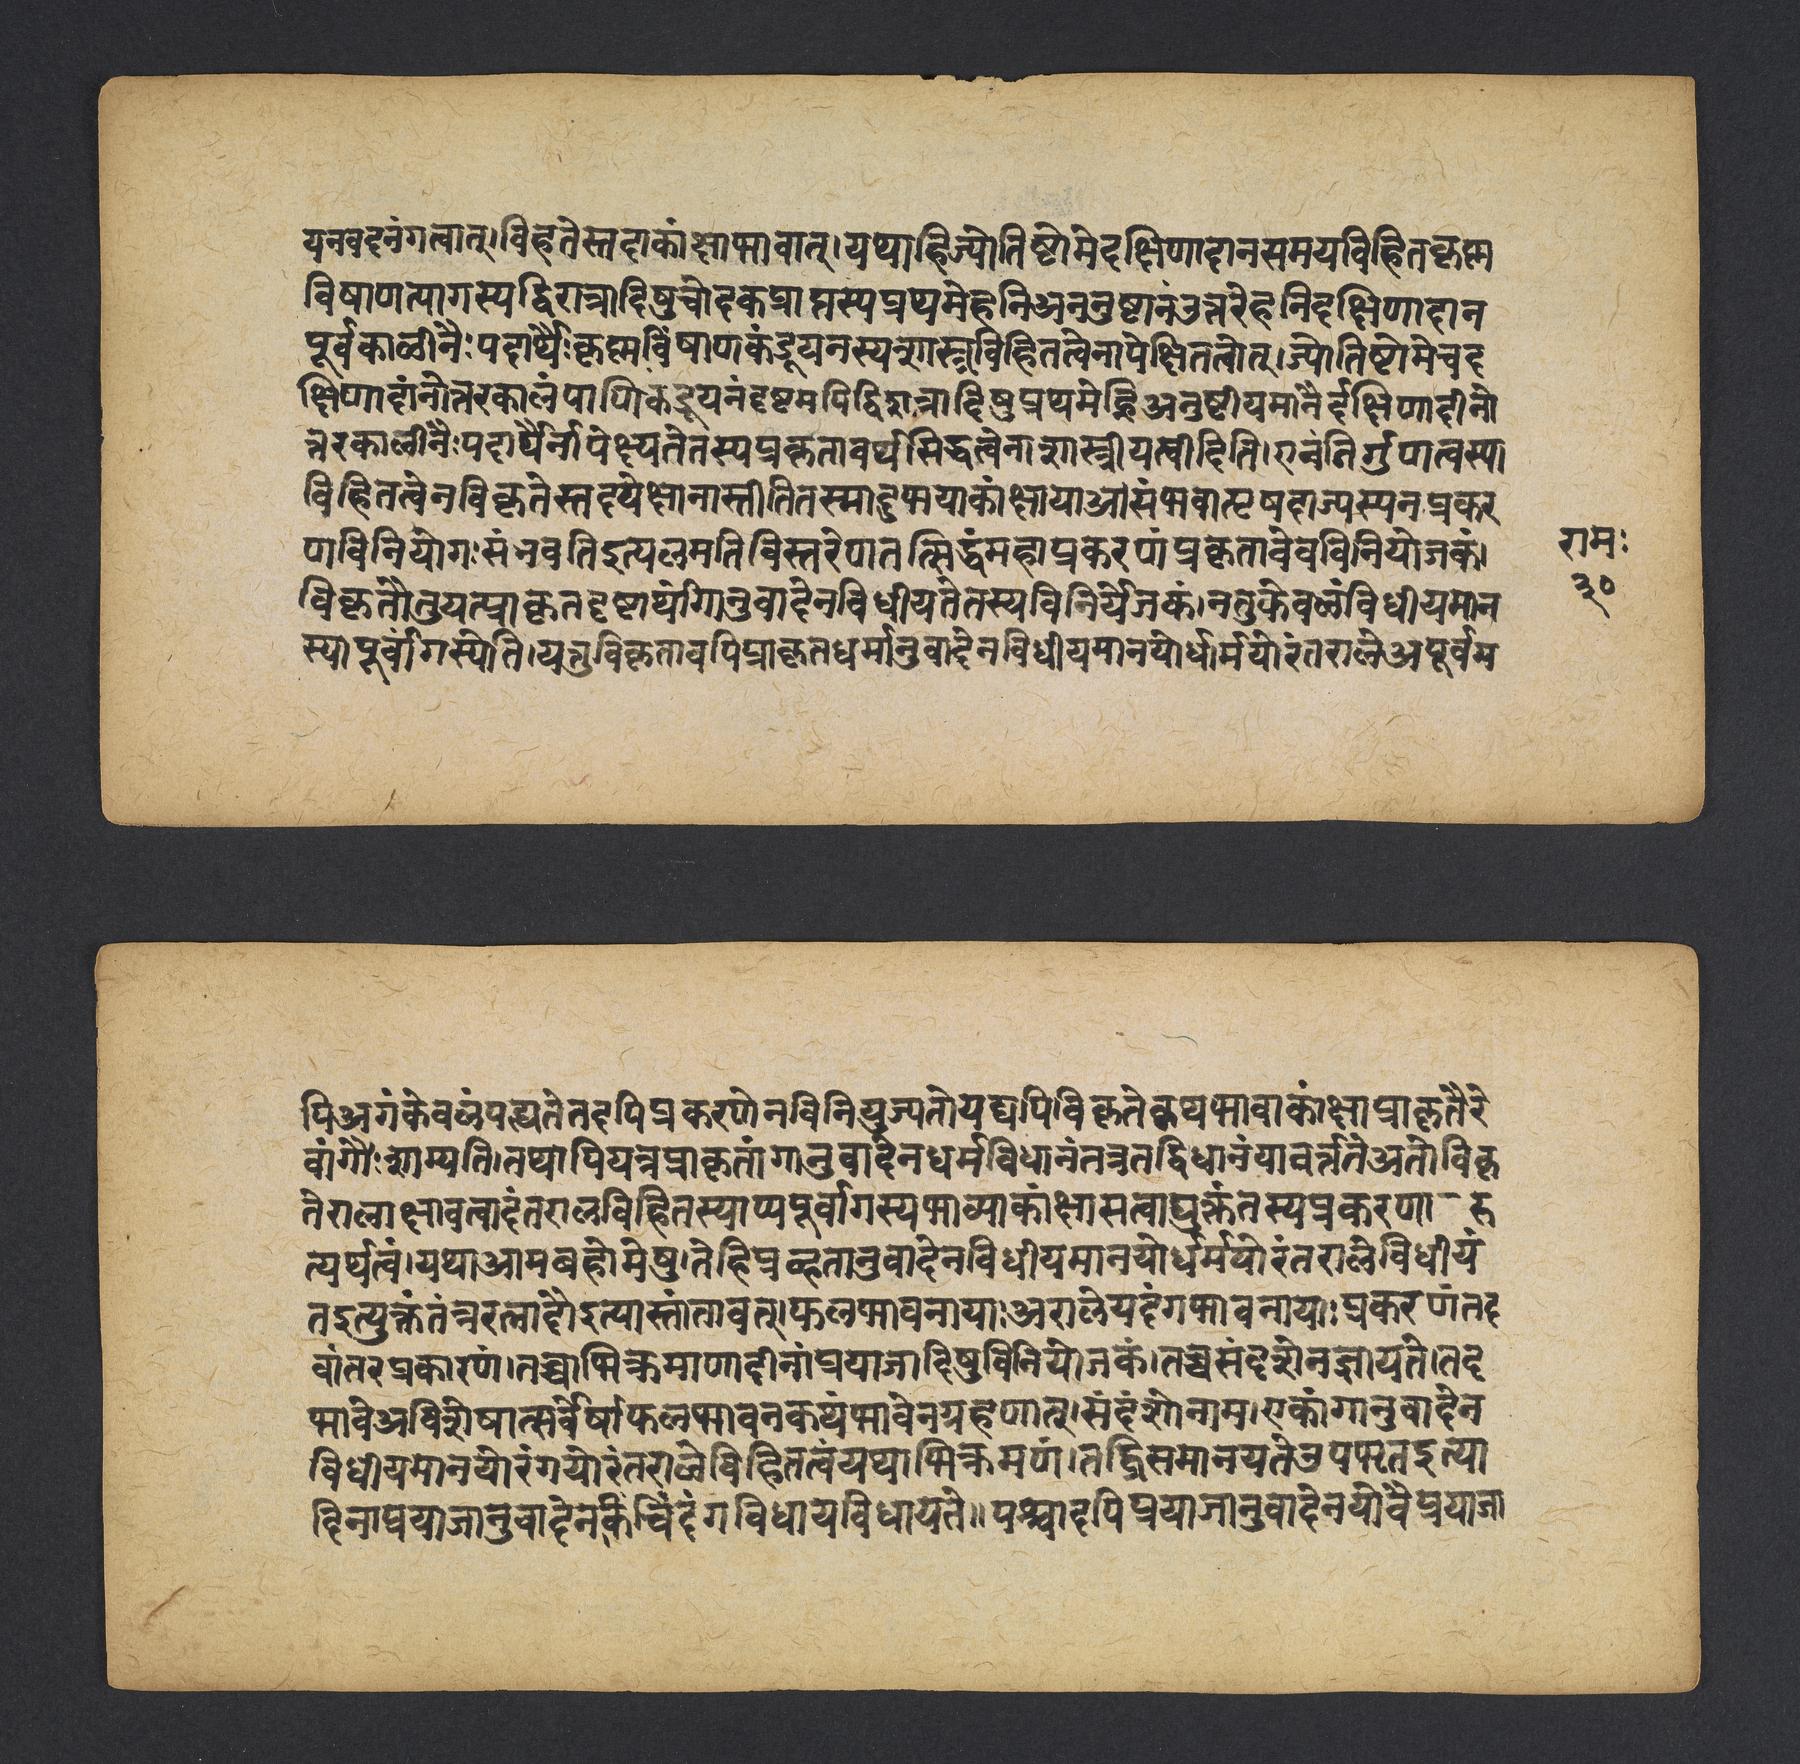 यनवदनंगत्वात्।विकृतेस्तदाकांक्षाभावात्।यथाहिज्योतिष्टोमेदक्षिणादानसमयविहितकृष्ण
विषाणत्यागस्यद्विरात्रादिषुचोदकप्राप्तस्यप्रथमेहनिअननुष्टानंउत्तरेहनिदक्षिणादान
पूर्वकाळीनैःपदार्थैःकृष्णविषाणकंडूयनस्यशास्त्रविहितत्वेनापेक्षितत्वात्।ज्योतिष्टोमेचद
क्षिणादानोत्तरकालंपाणिकंडूयनंदृष्टमपिद्विरात्रादिषुप्रथमेह्निअनुष्टीयमानैर्दक्षिणादानो
त्तरकाळीनैःपदार्थैर्नापेक्ष्यतेतस्यप्रकृतावर्थसिद्धत्वेनाशास्त्रीयत्वादिति।एवंतिर्गुणत्वस्या
विहितत्वेनविकृतेस्तदपेक्षानास्तीतितस्मादुभयाकांक्षायाअसंभवात्पृषदाज्यस्यनप्रकर
णविनियोगःसंनवतिइत्यलमतिविस्तरेणतत्सिद्धंमहाप्रकरणंप्रकृतावेवविनियोजकं।
रामः
३०
विकृतौतुयत्प्राकृतदृष्टार्थांगानुवादेनविधीयतेतस्यविनियोजकं।नतुकेवळंविधीयमान
स्यापूर्वांगस्येति।यत्तुविकृतावपिप्राकृतधर्मानुवादेनविधीयमानयोर्धर्मयोरंतरालेअपूर्वम
पिअगंकेवळंपठ्यतेतदपिप्रकरणेनविनियुज्यतेयद्यपिविकृतेःकथंभावाकांक्षाप्राकृतैरे
वांगैःशाम्यति।तथापियत्रप्राकृतांगानुवादेनधर्मविधानंतत्रतद्विधानंयावर्त्ततेअतोविकृ
तेरालाक्षावत्वादंतरालविहितस्याप्यपूर्वांगस्यभाव्याकांक्षासत्वाद्युक्तंतस्यप्रकरणा-रु
त्यर्थत्वं।यथाआमबहोमेषु।तेहिप्रकृतानुवादेनविधीयमानयोर्धर्मयोरंतरालेविधीयं
तइत्युक्तंतंत्ररत्नादौइत्यास्तांतावत्।फलभावनायाःअरालेयदंगभावनायाःप्रकरणंतद
वांतरप्रकारणं।तच्चाभिक्रमाणादीनांप्रयाजादिषुविनियोजकं।तच्चसंदंशेनज्ञायते।तद
भावेअविशेषात्सर्वेषांफलभावनकथंभावेनग्रहणात्।संदंशोनाम।एकांगानुवादेन
विधीयमानयोरंगयोरंतराळेविहितत्वंयथाभिक्रमणं।तद्धिसमानयतेउपभृतइत्या
दिनाप्रयाजानुवादेनकिंचिदंगविधायविधायते॥पश्चादपिप्रयाजानुवादेनयोवैप्रयाजा